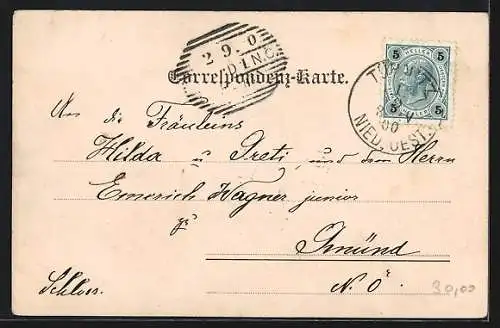 2 9. 0
Correspondenz-Karte.
5 HELLER 5
5 5
NIED. OEST.
An die Fräuleins
Hilda u Greti und dem Herrn
Emerich Wagner junior
zu
Gmünd
Schloss. N. Ö
30,00